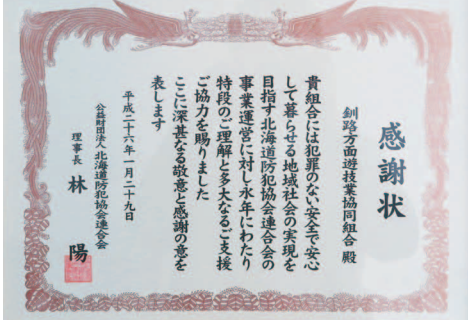 感謝状
釧路方面遊技業協同組合 殿
貴組合には犯罪のない安全で安心
して暮らせる地域社会の実現を
目指す北海道防犯協会連合会の
事業運営に対し永年にわたり
特段のご理解と多大なるご支援
ご協力を賜りました
ここに深甚なる敬意と感謝の意を
表します
平成二十六年一月二十九日
公益財団法人 北海道防犯協会連合会
理事長 林 陽